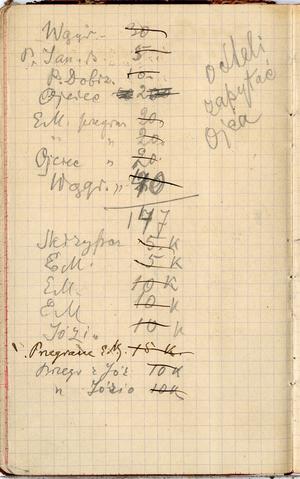 Węgr. 30
P. Jan. 5
P. Dobrz. 10
Ojciec 20
E.M. przegran 20
" " 20
Ojciec " 20
Węgr. " 70
147
Skrzypka 5 K
E.M. 5 K
E.M. 10 K
E.M 10 K
Józi 10 K
Przegrane E.M. 15 K.
Przegr z Józ 10 K
" Józio 10 K
od Heli
zapytać
Ojca